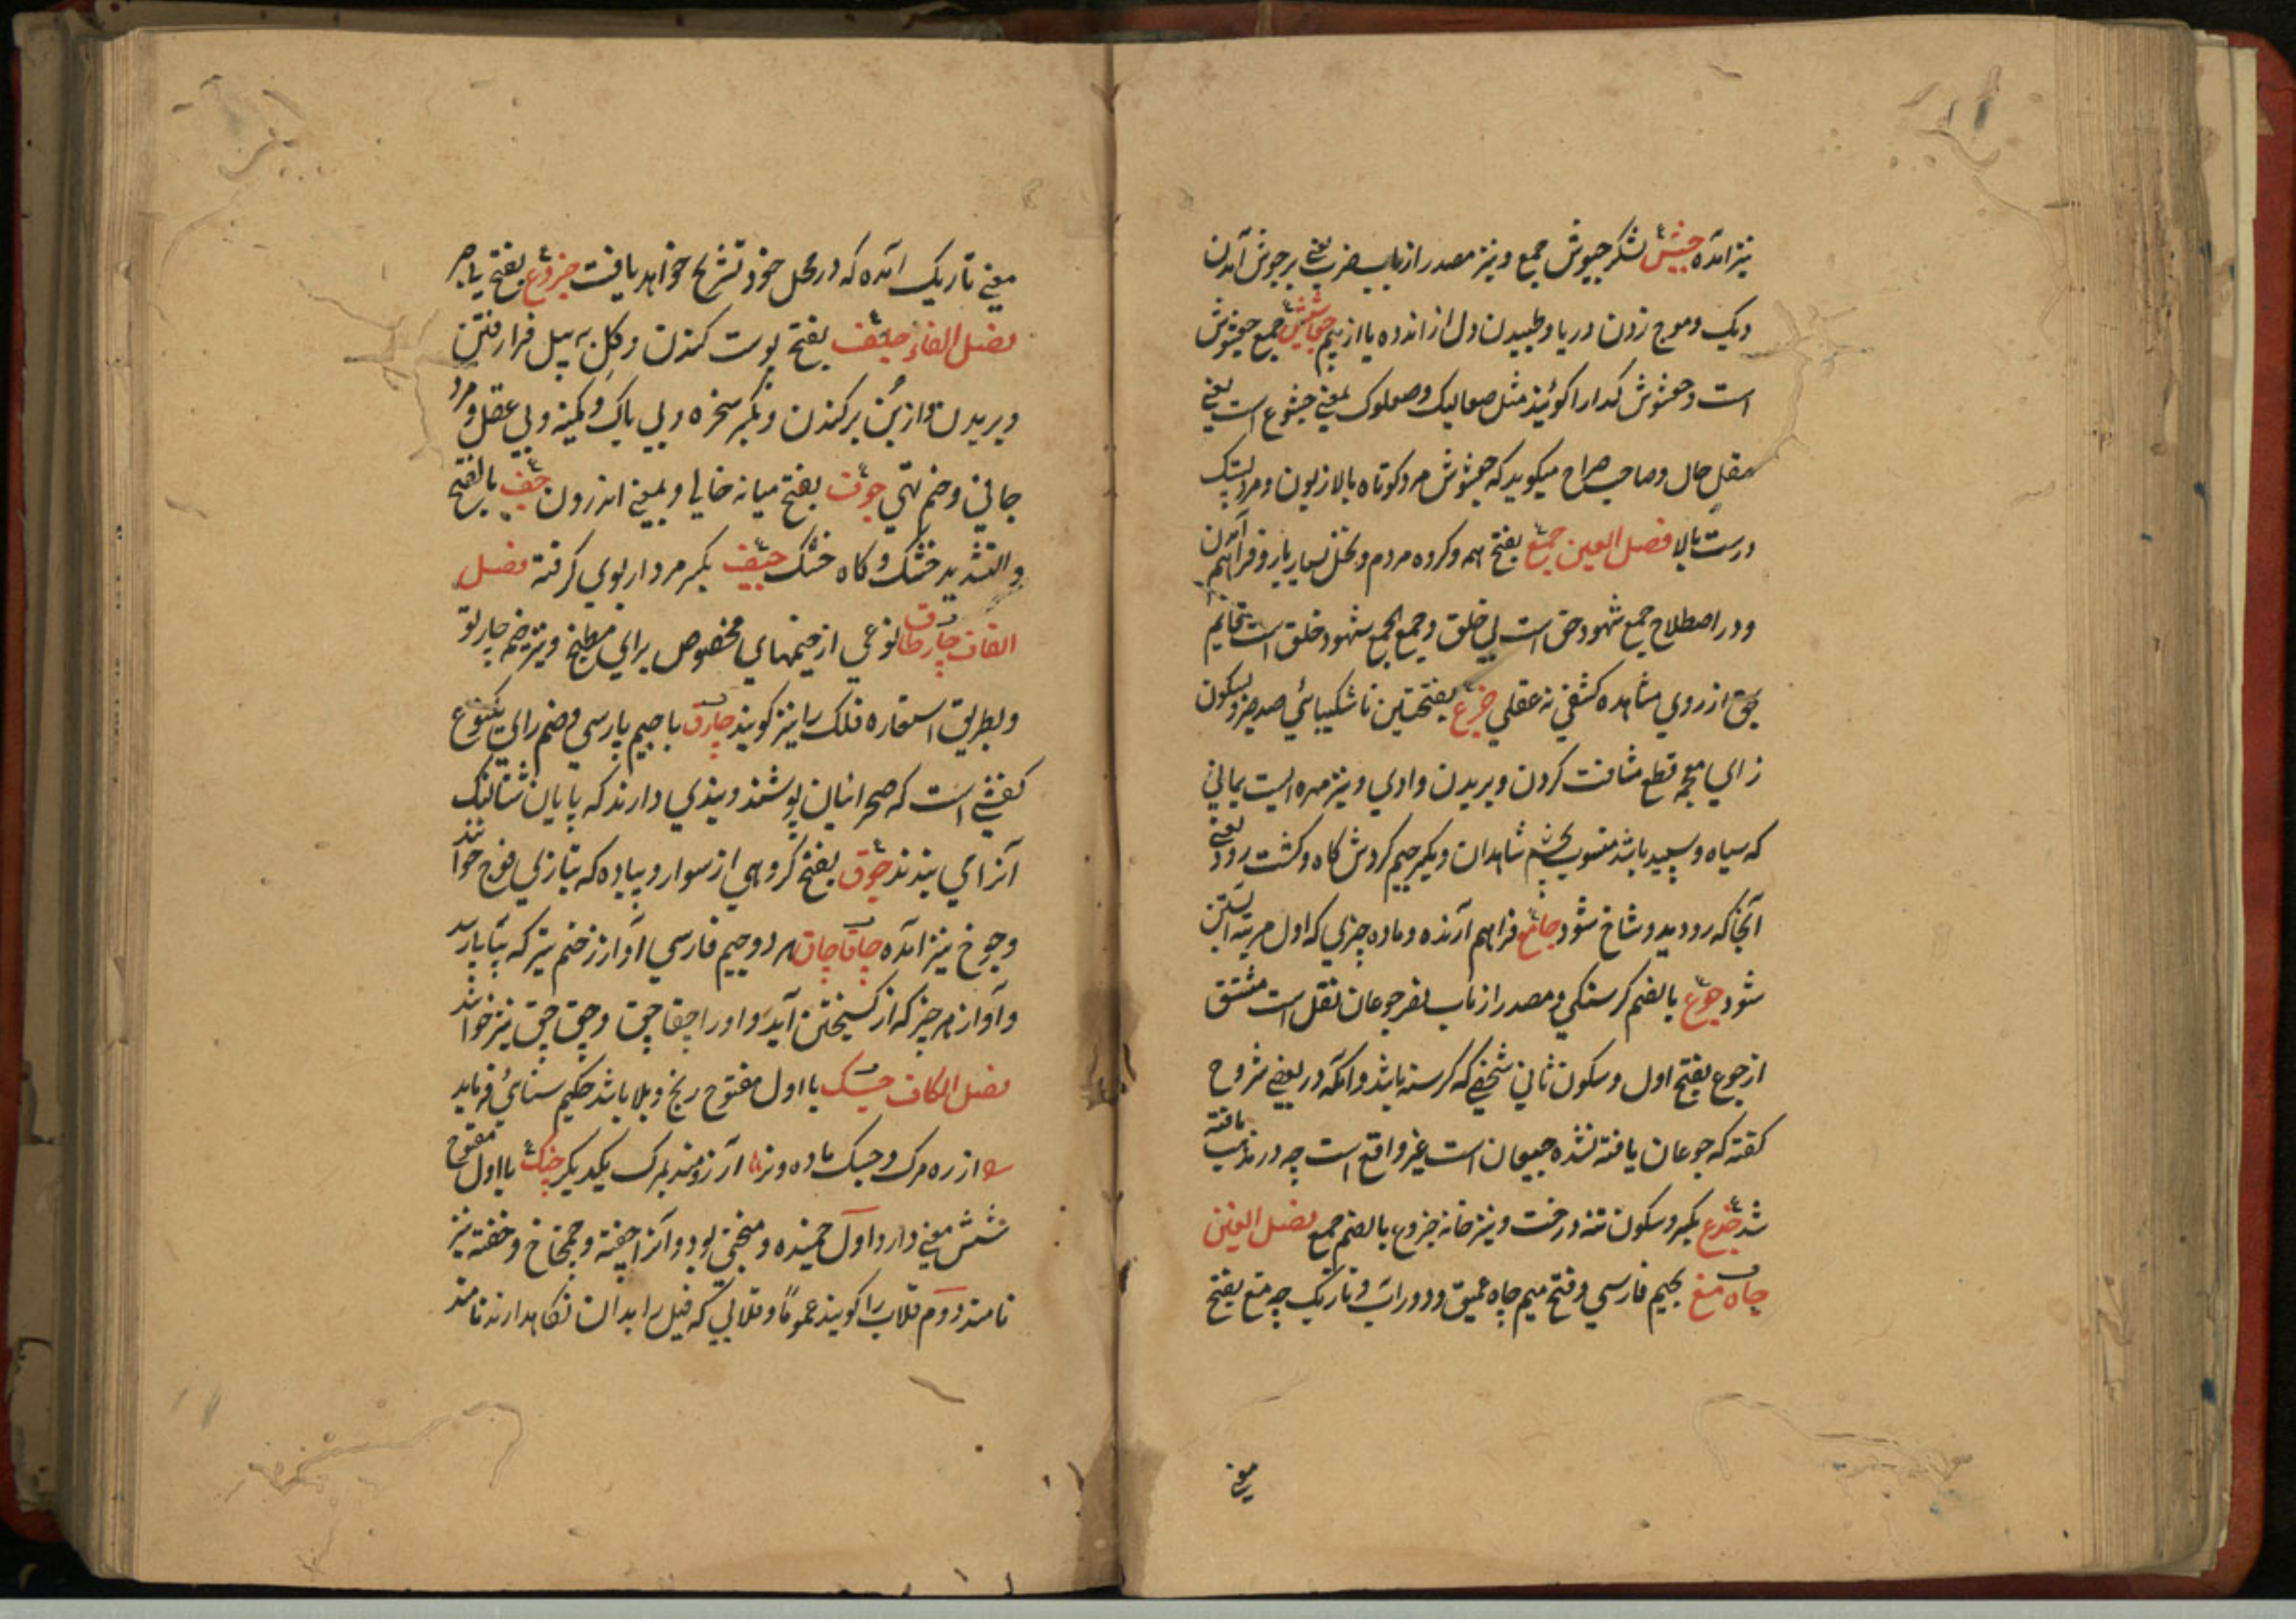 نیز آمده جیش لشکر جیوش جمع و نیز مصدر از باب ضرب یعنی بر جوش آمدن
دیک و موج زدن دریا و طپیدن دل از اندوه یا از بیم جمع جعشوش
است و جعشوش کدا را کویند مثل صعالیک و صعلوک بمعنی خشوع است یعنی
مقل حال و صاحب صراح میکوید که جعشوش مرد کوتاه بالا زبون و مرد
درست بالا فصل العین جمع بفتح همه و کروه مردم و نخل بسیار بار و فراهم آمدن
و در اصطلاح جمع شهود حق است بی خلق و جمع الجمع شهود خلق است قایم
بحق از روی مشاهده کشفی نه عقلی جزع بفتحتین ناشکیبائی ضد صبر و بسکون
زای معجمه قطع مسافت کردن و بریدن وادی و نیز مهره ایست یمانی
که سیاه و سپید باشد منسوب بچشم شاهدان و بکسر جیم کردش کاه و کشت رود یعنی
آنجا که رود دو شاخ شود جامع فراهم آرنده و ماده چیزی که اول مرتبه آبستن
شود جوع بالضم کرسنکی و مصدر از باب نصر جوعان نقل است مشتق
از جوع بفتح اول و سکون ثانی شخصی که کرسنه باشد و آنکه در بعضی شروح
کفته که جوعان یافته نشده جیعان است غیر واقع است چه در مذهب یافته
شد جذع بکسر و سکون تنه درخت و نیز خانه جذوع بالضم جمع فصل الغین
چاه مغ بجیم فارسی و فتح میم چاه عمیق و دور است و تاریک چه مغ بفتح
معنی
معنی تاریک آمده که در محل خود تشریح خواهد یافت جزوع بفتح
فصل الفاء جلف بفتح پوست کندن و کل به بیل فرا رفتن
و بریدن و از بن برکندن و بکسر سخره و بی باک و کمینه و بی عقل و مرد
جافی و خم تهی جوف بفتح میانه خالی و بمعنی اندرون جف بالفتح
والتشدید خشک و کاه خشک جیف بکسر مردار بوی کرفته فصل
القاف چارطاق نوعی از خیمهای مخصوص برای مطبخ و نیز خیمه چارتو
و بطریق استعاره فلک را نیز کویند چارق با جیم پارسی و ضم رای یکنوع
کفشی است که صحرانیان پوشند و بندی دارند که بپایان شتالنک
آنرا می بندند جوق بفتح کروهی از سوار و پیاده که بتازی فوج خوانند
و جوخ نیز آمده چاقاچاق هر دو جیم فارسی آواز زخم تیر که بتابارسد
و آواز هر چیز که از کسیختن آید و او را چقاچق و چق چق نیز خوانند
فصل الکاف جسک با اول مفتوح رنج و بلا باشد حکیم سنائی فرماید
از ره مرک و جسک ماده و نر آرزومند مرک یکدیکر جنک با اول مفتوح
شش معنی دارد اول خمیده و منحنی بود و آنرا چفته و چماخ و خفته نیز
نامند دوم قلاب را کویند عموماً و قلابی که فیل را بدان نکاهدارند نامند